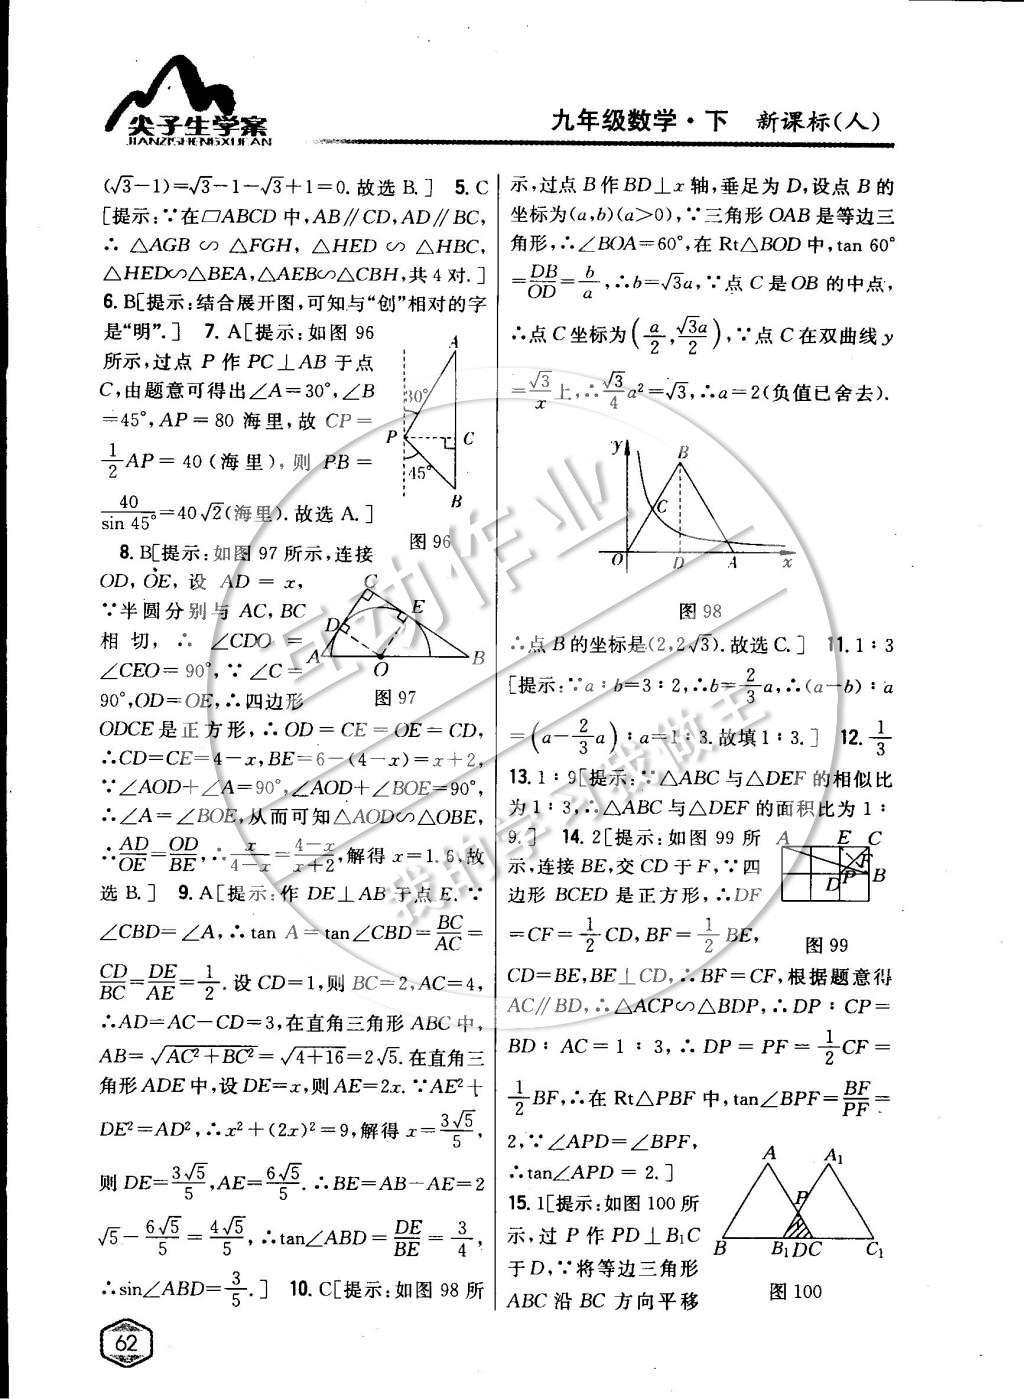 尖子生学案
JIANZISHENGXUEAN
九年级数学·下 新课标(人)
(√3-1)=√3-1-√3+1=0.故选B.] 5.C
[提示:∵在□ABCD中,AB∥CD,AD∥BC,
∴△AGB∽△FGH,△HED∽△HBC,
△HED∽△BEA,△AEB∽△CBH,共4对.]
6.B[提示:结合展开图,可知与“创”相对的字
是“明”.] 7.A[提示:如图96
所示,过点P作PC⊥AB于点
C,由题意可得出∠A=30°,∠B
=45°,AP=80海里,故CP=
1/2AP=40(海里),则PB=
40/sin 45°=40√2(海里).故选A.]
A
30°
P
C
45°
B
图96
8.B[提示:如图97所示,连接
OD,OE,设AD=x,
∵半圆分别与AC,BC
相切,∴∠CDO=
∠CEO=90°,∵∠C=
90°,OD=OE,∴四边形
C
D
E
A
O
B
图97
ODCE是正方形,∴OD=CE=OE=CD,
∴CD=CE=4-x,BE=6-(4-x)=x+2,
∵∠AOD+∠A=90°,∠AOD+∠BOE=90°,
∴∠A=∠BOE,从而可知△AOD∽△OBE,
∴AD/OE=OD/BE,∴x/(4-x)=(4-x)/(x+2),解得x=1.6,故
选B.] 9.A[提示:作DE⊥AB于点E.∵
∠CBD=∠A,∴tan A=tan∠CBD=BC/AC=
CD/BC=DE/AE=1/2.设CD=1,则BC=2,AC=4,
∴AD=AC-CD=3,在直角三角形ABC中,
AB=√(AC²+BC²)=√(4+16)=2√5.在直角三
角形ADE中,设DE=x,则AE=2x.∵AE²+
DE²=AD²,∴x²+(2x)²=9,解得x=3√5/5,
则DE=3√5/5,AE=6√5/5.∴BE=AB-AE=2
√5-6√5/5=4√5/5,∴tan∠ABD=DE/BE=3/4,
∴sin∠ABD=3/5.] 10.C[提示:如图98所
示,过点B作BD⊥x轴,垂足为D,设点B的
坐标为(a,b)(a>0),∵三角形OAB是等边三
角形,∴∠BOA=60°,在Rt△BOD中,tan 60°
=DB/OD=b/a,∴b=√3a,∵点C是OB的中点,
∴点C坐标为(a/2,√3a/2),∵点C在双曲线y
=√3/x上,∴√3/4a²=√3,∴a=2(负值已舍去).
y
B
C
O
D
A
x
图98
∴点B的坐标是(2,2√3).故选C.] 11.1∶3
[提示:∵a∶b=3∶2,∴b=2/3a,∴(a-b)∶a
=(a-2/3a)∶a=1∶3.故填1∶3.] 12.1/3
13.1∶9[提示:∵△ABC与△DEF的相似比
为1∶3,∴△ABC与△DEF的面积比为1∶
9.] 14.2[提示:如图99所
示,连接BE,交CD于F,∵四
边形BCED是正方形,∴DF
=CF=1/2CD,BF=1/2BE,
A
E
C
F
D
P
B
图99
CD=BE,BE⊥CD,∴BF=CF,根据题意得
AC∥BD,∴△ACP∽△BDP,∴DP∶CP=
BD∶AC=1∶3,∴DP=PF=1/2CF=
1/2BF,∴在Rt△PBF中,tan∠BPF=BF/PF=
2,∵∠APD=∠BPF,
∴tan∠APD=2.]
15.1[提示:如图100所
示,过P作PD⊥B₁C
于D,∵将等边三角形
ABC沿BC方向平移
A
A₁
P
B
B₁DC
C₁
图100
62
互动作业
我的学习我做主